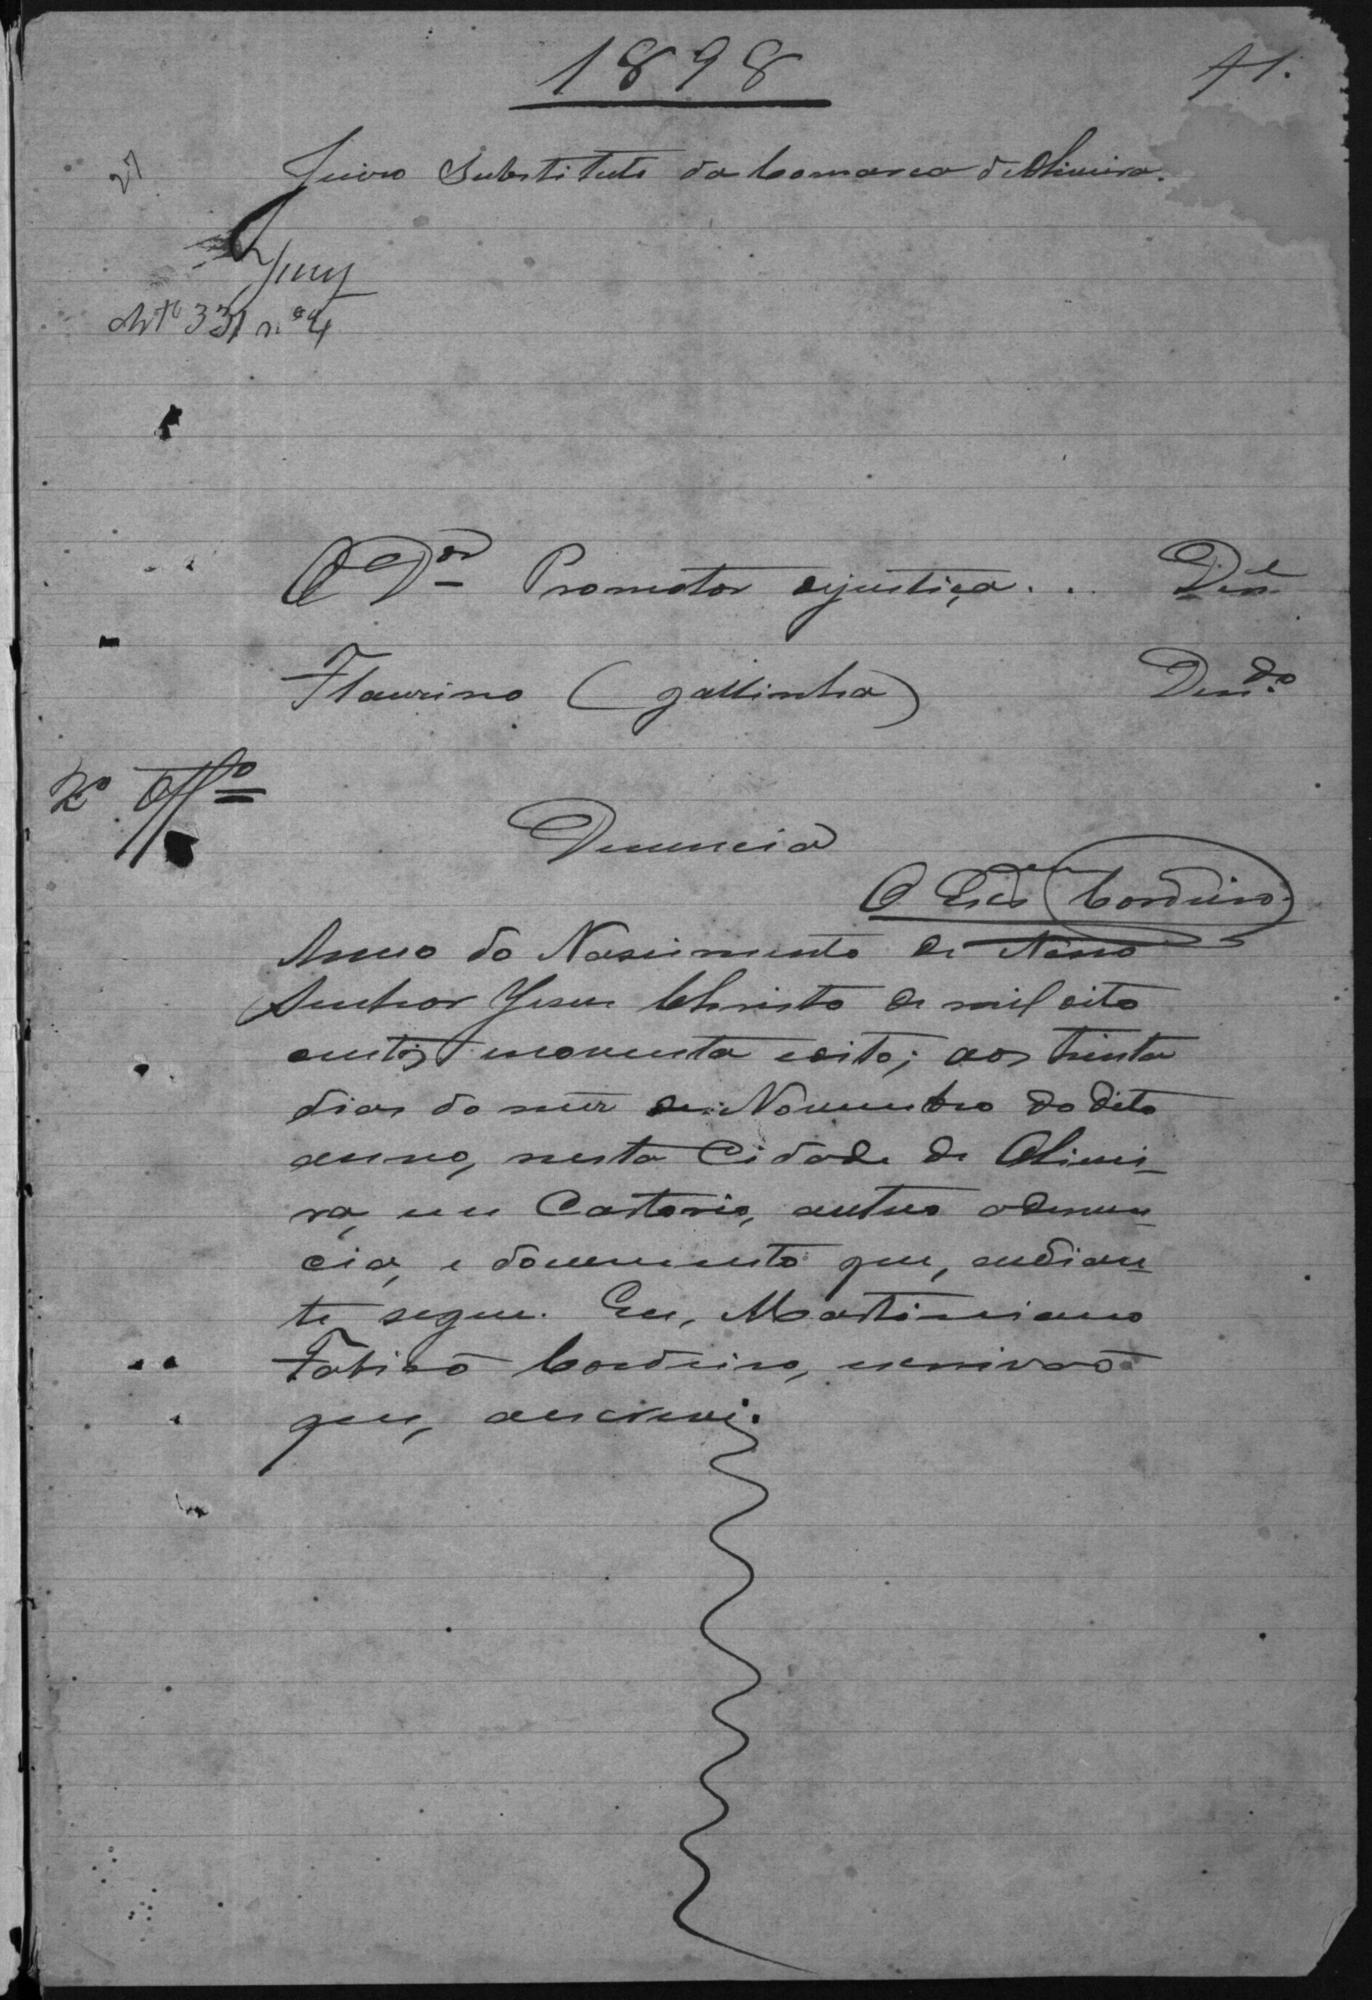 1898
f1.
27
Juizo Substituto da Comarca de Oliveira.
Jury
Art.º 331 n.º 4
O D.or Promotor dejustiça . . . Den.e
Flaurino (gallinha) Den.do
2º Off.º
Denuncia
O Escr.am Cordeiro.
Anno do Nascimento de Nosso
Senhor Jesus Christo de mil oito
centos noventa eoito; aos trinta
dias do mez de Novembro do dito
anno, nesta Cidade de Olivei-
ra, em Cartorio, autuo adenun-
cia, e documento que, adian-
te segue. Eu, Martiniano
Fabião Cordeiro, escrivão
que, escrevi.